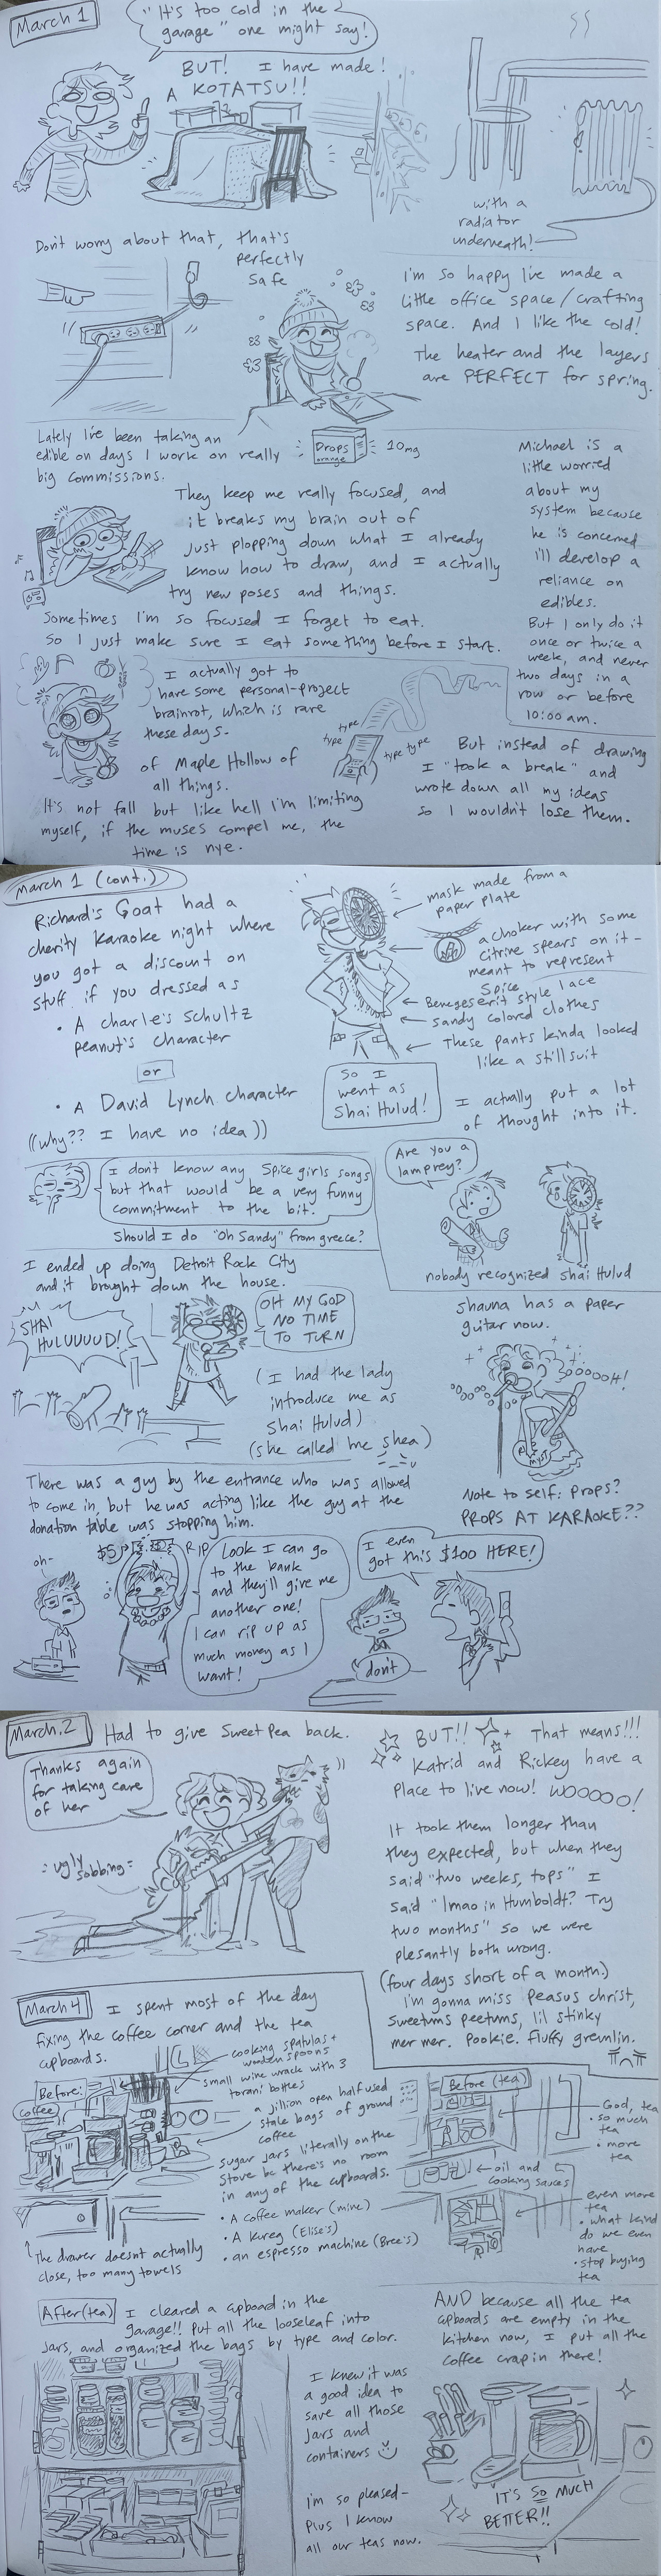 March 1
"It's too cold in the
garage" one might say!
BUT! I have made!
A KOTATSU!!
with a
radiator
underneath!
Don't worry about that, that's
perfectly
safe
I'm so happy I've made a
little office space/crafting
space. And I like the cold!
The heater and the layers
are PERFECT for spring.
Lately I've been taking an
edible on days I work on really
big commissions.
Drops
orange
10mg
They keep me really focused, and
it breaks my brain out of
just plopping down what I already
know how to draw, and I actually
try new poses and things.
Sometimes I'm so focused I forget to eat.
So I just make sure I eat something before I start.
Michael is a
little worried
about my
system because
he is concerned
i'll develop a
reliance on
edibles.
But I only do it
once or twice a
week, and never
two days in a
row or before
10:00 am.
I actually got to
have some personal-project
brainrot, which is rare
these days.
of Maple Hollow of
all things.
It's not fall but like hell I'm limiting
myself, if the muses compel me, the
time is nye.
type
type
type type
But instead of drawing
I "took a break" and
wrote down all my ideas
so I wouldn't lose them.
March 1 (cont.)
Richard's Goat had a
charity karaoke night where
you got a discount on
stuff if you dressed as
• A charle's schultz
peanut's character
or
• A David Lynch character
((why?? I have no idea))
mask made from a
paper plate
a choker with some
citrine spears on it-
meant to represent
Spice
Benegeserit style lace
sandy colored clothes
These pants kinda looked
like a stillsuit
So I
went as
Shai Hulud!
I actually put a lot
of thought into it.
I don't know any Spice girls songs
but that would be a very funny
commitment to the bit.
Should I do "Oh Sandy" from greece?
Are you a
lamprey?
nobody recognized Shai Hulud
I ended up doing Detroit Rock City
and it brought down the house.
SHAI
HULUUUUD!
OH MY GOD
NO TIME
TO TURN
(I had the lady
introduce me as
Shai Hulud)
(she called me shea)
Shauna has a paper
guitar now.
OOOOOH!
Note to self: Props?
PROPS AT KARAOKE??
There was a guy by the entrance who was allowed
to come in, but he was acting like the guy at the
donation table was stopping him.
oh-
$5
RIP
Look I can go
to the bank
and they'll give me
another one!
I can rip up as
much money as I
want!
I even
got this $100 HERE!
don't
March 2
Had to give Sweet Pea back.
Thanks again
for taking care
of her
= ugly sobbing =
BUT!! That means!!!
Katrid and Rickey have a
Place to live now! WOOOOO!
It took them longer than
they expected, but when they
said "two weeks, tops" I
said "lmao in Humboldt? Try
two months" so we were
plesantly both wrong.
(four days short of a month)
I'm gonna miss Peasus christ,
Sweetums peetums, lil stinky
mer mer. Pookie. Fluffy gremlin.
March 4
I spent most of the day
fixing the coffee corner and the tea
cupboards.
Before:
Coffee
cooking spatulas +
wooden spoons
small wine wrack with 3
torani bottles
a jillion open half used
stale bags of ground
coffee
sugar jars literally on the
stove bc there's no room
in any of the cupboards.
• A coffee maker (mine)
• A Kureg (Elise's)
• an espresso machine (Bree's)
The drawer doesnt actually
close, too many towels
Before (tea)
God, tea
• so much
tea
• more
tea
oil and
cooking sauces
even more
tea
• what kind
do we even
have
• stop buying
tea
After (tea)
I cleared a cupboard in the
garage!! Put all the looseleaf into
jars, and organized the bags by type and color.
I knew it was
a good idea to
save all those
jars and
containers
I'm so pleased-
Plus I know
all our teas now.
AND because all the tea
cupboards are empty in the
kitchen now, I put all the
coffee crap in there!
IT'S SO MUCH
BETTER!!